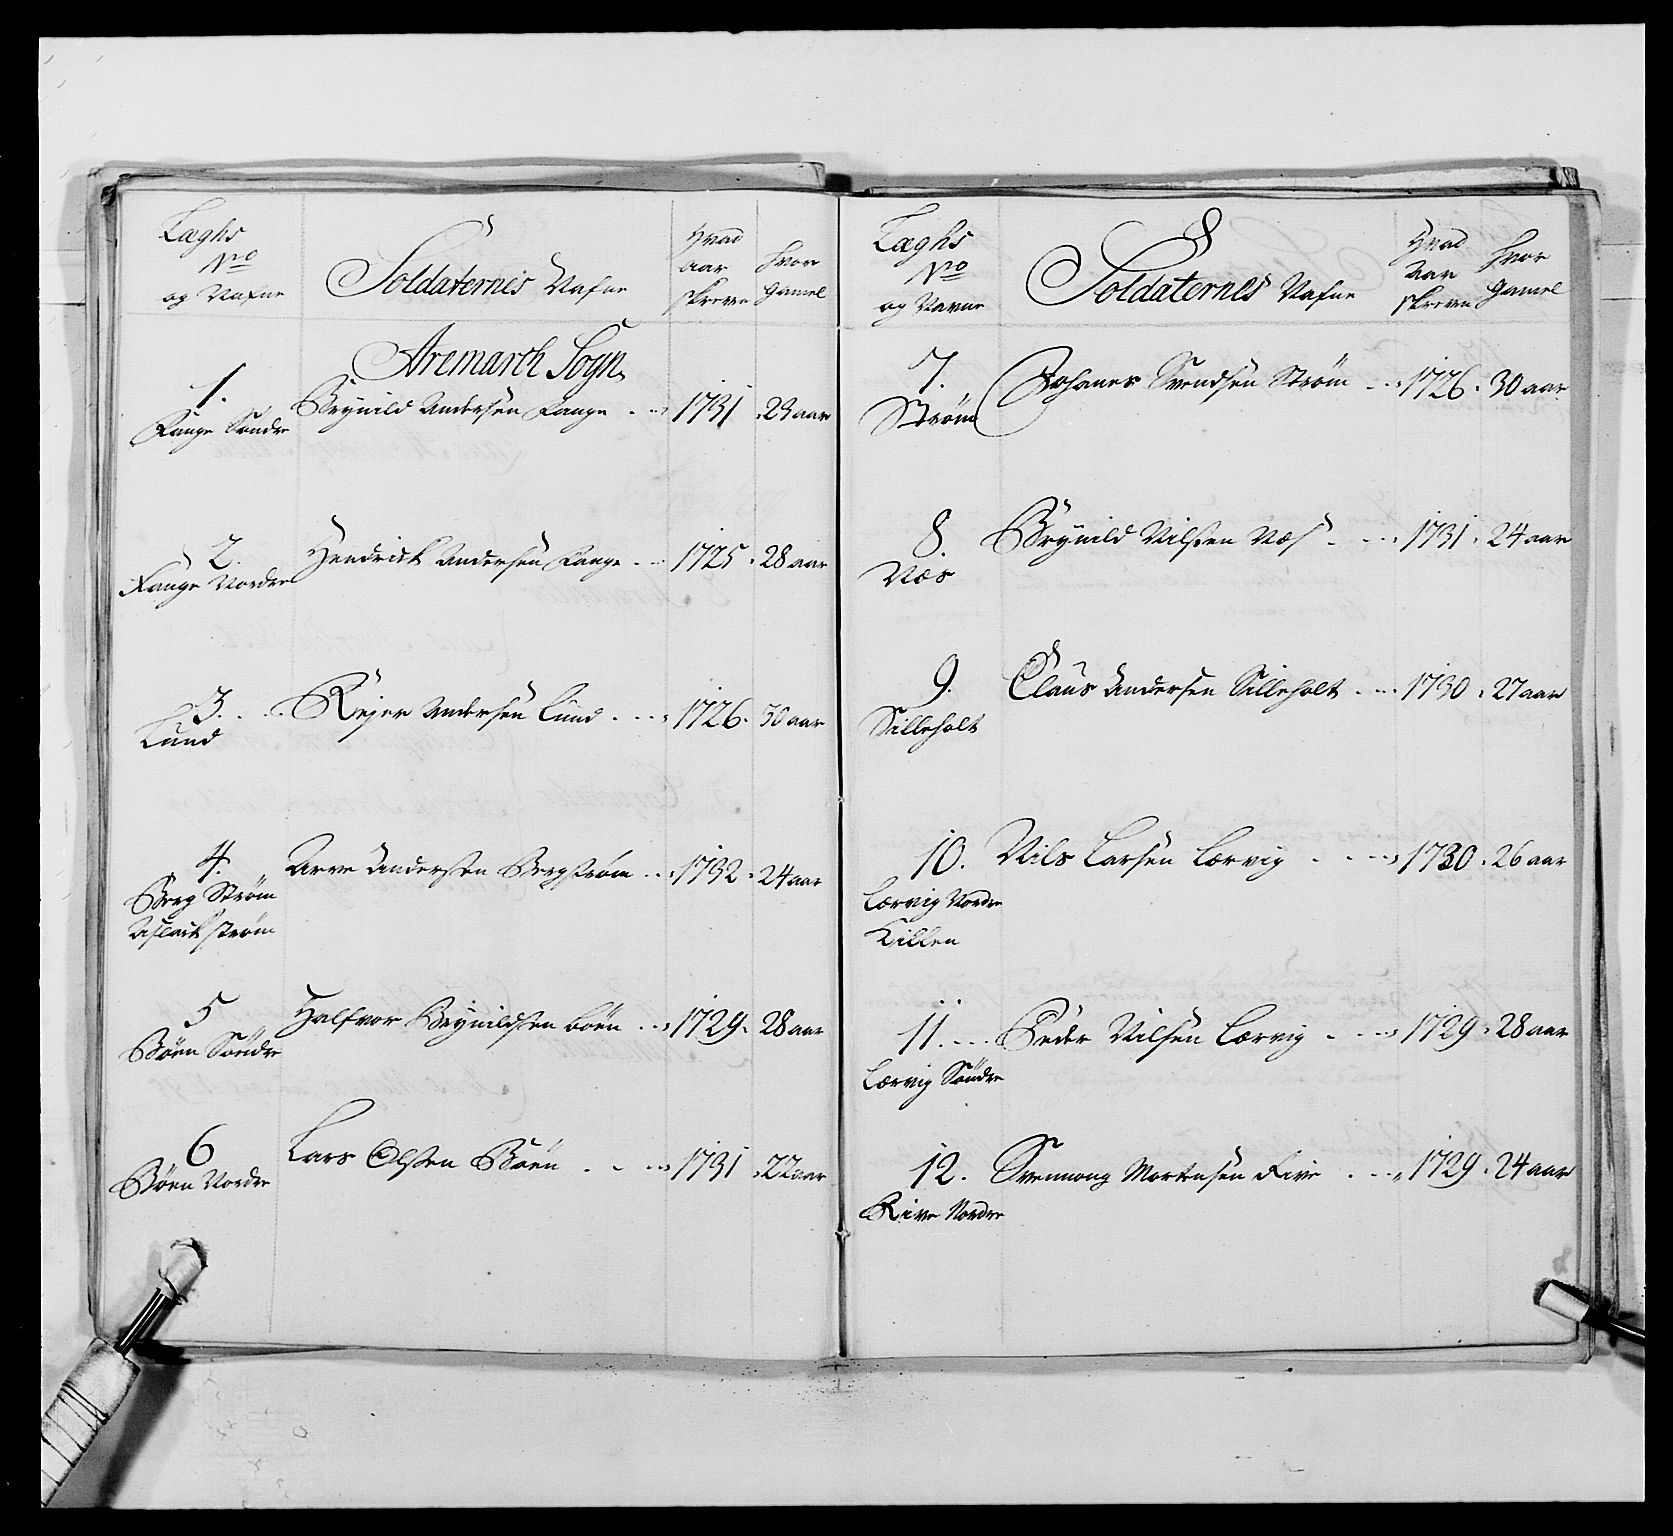 Læghs
No
og Nafne
Soldaternes Nafne
Hvad
aar
skreven
hvor
gamel
Aremarck Sogn
1.
Fange Søndre
Brynild Andersen Fange 1731 23 aar
2.
Fange Nordre
Hendrick Andersen Fange 1725 28 aar
3.
Lund
Rejer Andersen Lund 1726 30 aar
4.
Berg Strøm
Aslack strøm
Arve Andersen Bergstrøm 1732 24 aar
5
Bøen Søndre
Halfvor Brynildsen Bøen 1729 28 aar
6
Bøen Nordre
Lars Olsen Bøen 1731 22 aar
Læghs
No
og Navne
Soldaternes Nafne
Hvad
Aar
skreven
hvor
gamel
7.
Strøm
Johanes Svendsen Strøm 1726 30 aar
8.
Næs
Brynild Nilsen Næs 1731 24 aar
9.
Silleholt
Claus Andersen Silleholt 1730 27 aar
10.
Lervig Nordre
Killen
Nils Larsen Lervig 1730 26 aar
11.
Lervig Søndre
Peder Nilsen Lervig 1729 28 aar
12.
Rive Nordre
Svenning Mortensen Rive 1729 24 aar